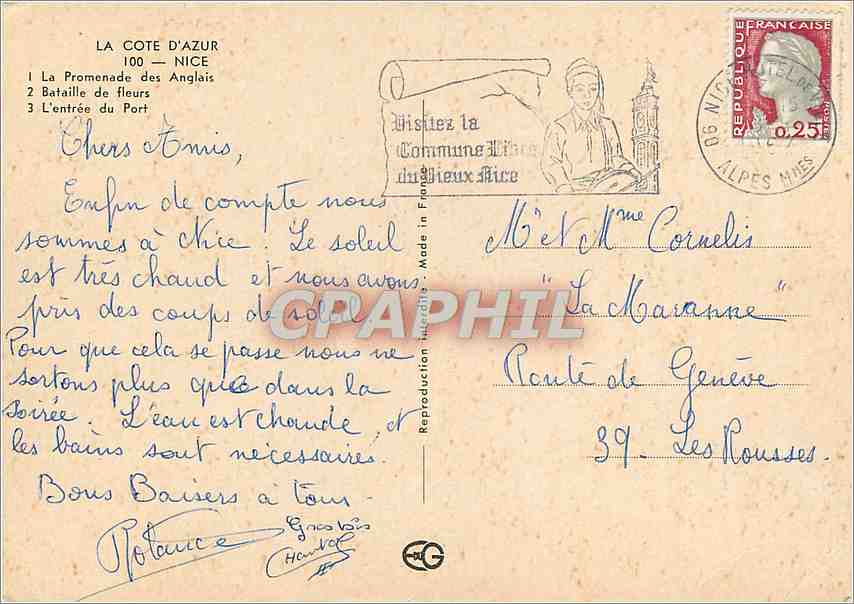 LA COTE D'AZUR
100 — NICE
1 La Promenade des Anglais
2 Bataille de fleurs
3 L'entrée du Port
Chers Amis,
Enfin de compte nous
sommes à Nice. Le soleil
est très chaud et nous avons
pris des coups de soleil
Pour que cela se passe nous ne
sortons plus que dans la
soirée. L'eau est chaude, et
les bains sont nécessaires.
Bons Baisers à tous.
Gros bis
Chantal
Reproduction interdite - Made in France
Visitez la
Commune Libre
du Vieux Nice
REPUBLIQUE FRANCAISE
0,25
06 NICE
ALPES MMES
Mr et Mme Cornelis
"La Maranne"
Route de Genève
39. Les Rousses.
CPAPHIL
EDUG